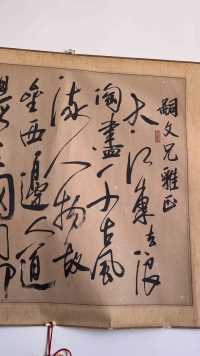 嗣文兄雅正
大江東去浪
淘盡千古風
流人物故
壘西邊人道
是三國周郎